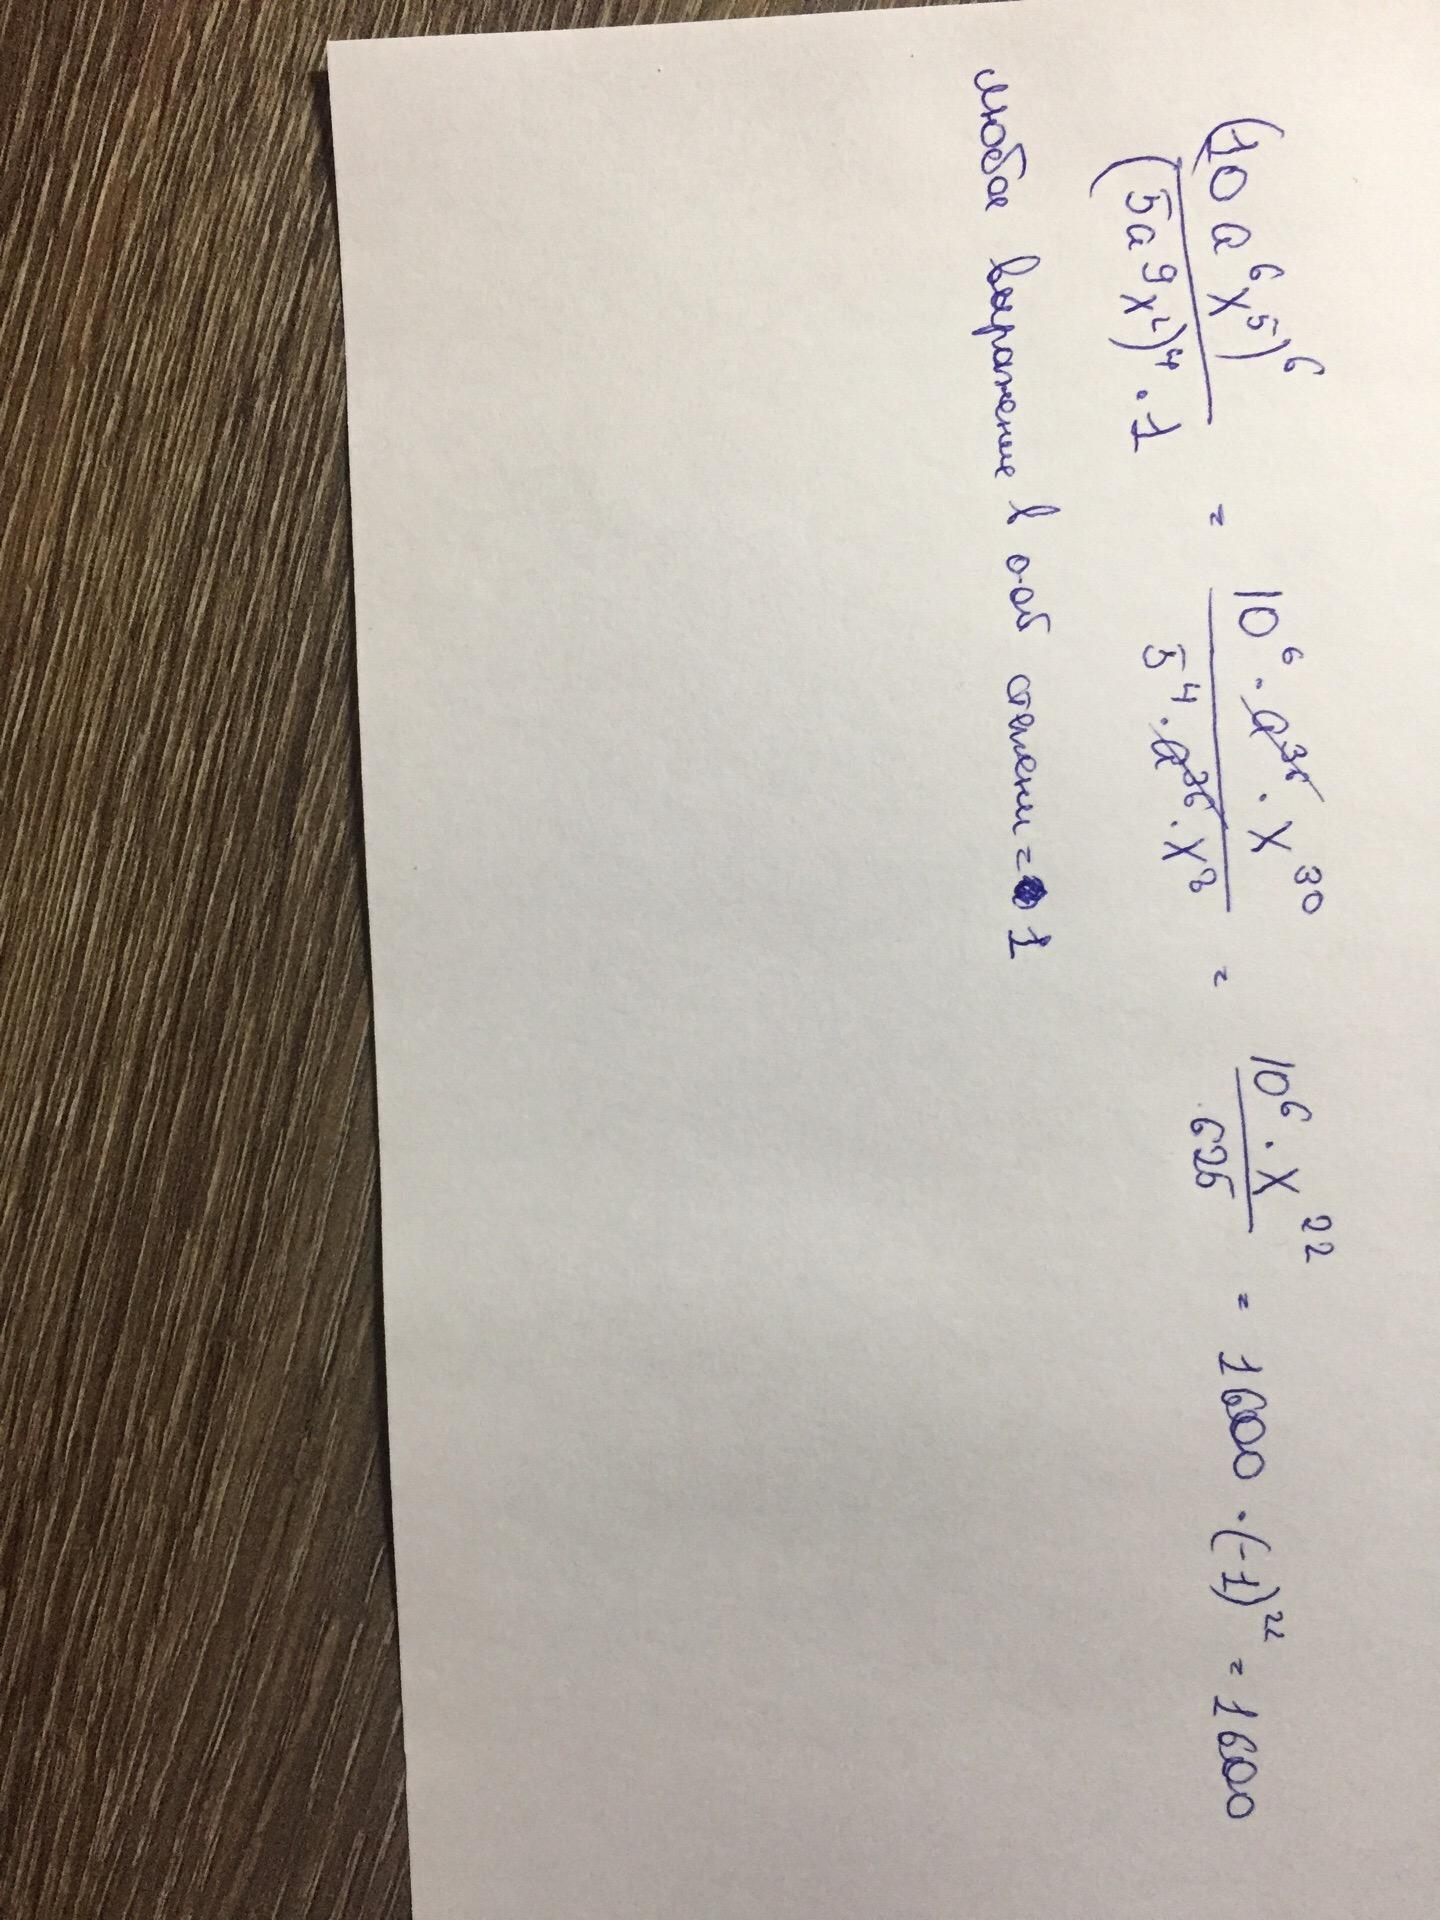 (10a⁶x⁵)⁶ / (5a⁹x²)⁴ · 1 = 10⁶ · a³⁶ · x³⁰ / 5⁴ · a³⁶ · x⁸ = 10⁶ · x²² / 625 = 1600 · (-1)²² = 1600
любое выражение в 0-ой степени = 1